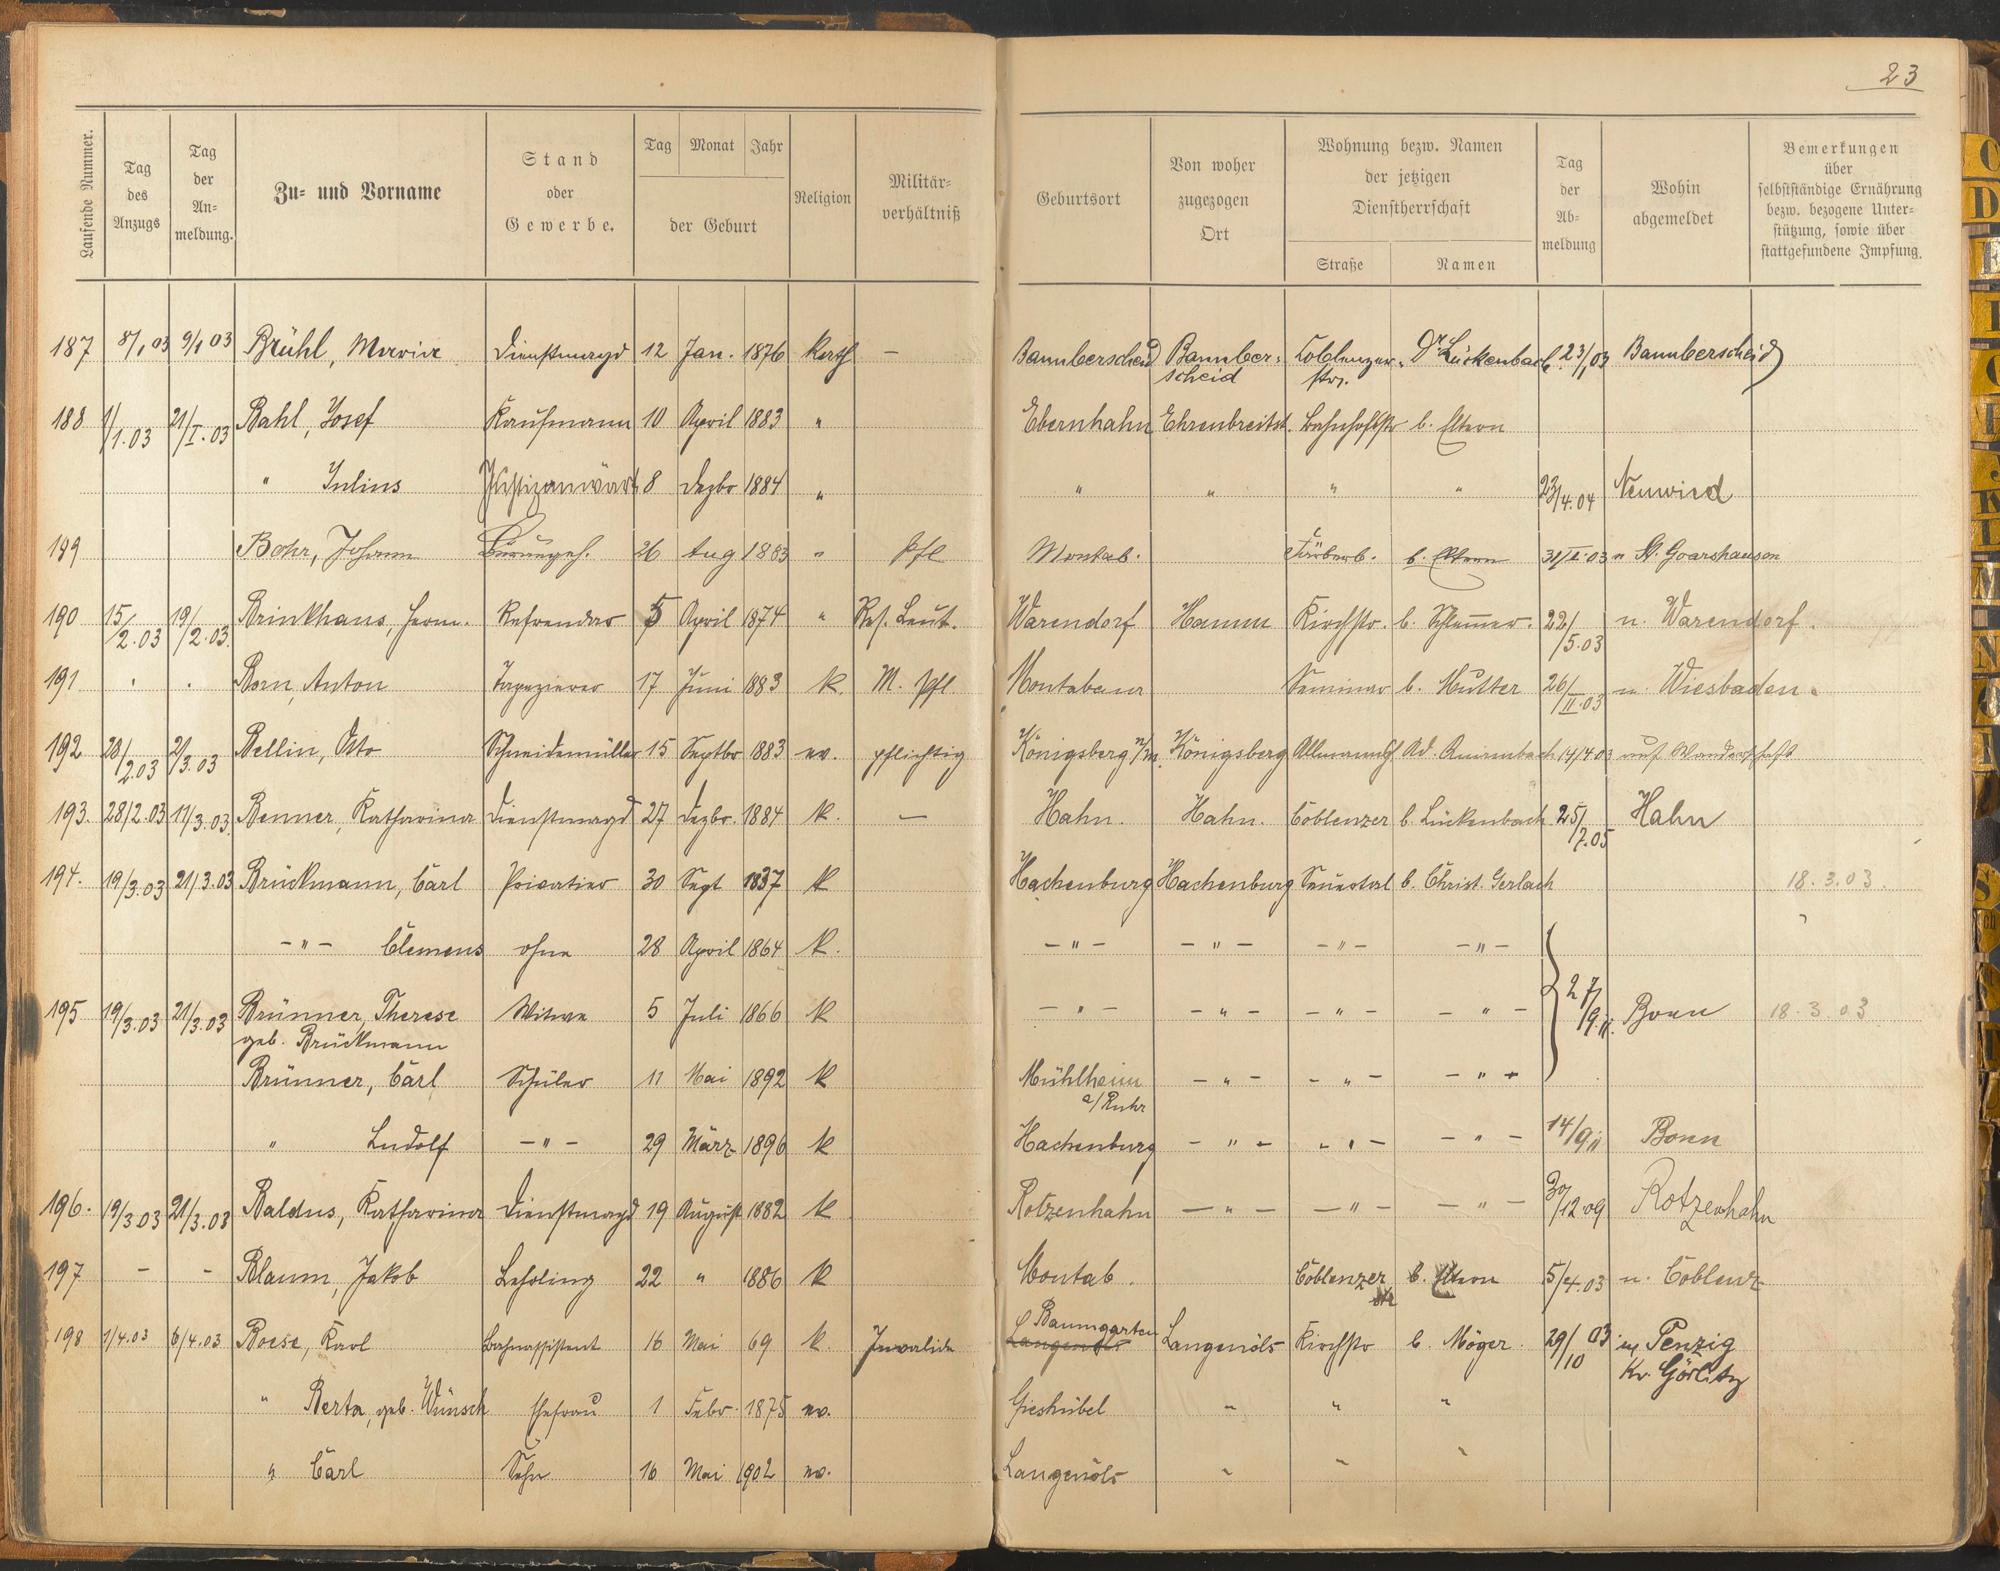 23
Laufende Nummer.
Tag des Anzugs
Tag der An- meldung.
Zu- und Vorname
Stand oder Gewerbe.
Tag Monat Jahr
der Geburt
Religion
Militär- verhältniß
Geburtsort
Von woher zugezogen Ort
Wohnung bezw. Namen der jetzigen Dienstherrschaft
Straße Namen
Tag der Ab- meldung
Wohin abgemeldet
Bemerkungen über selbstständige Ernährung bezw. bezogene Unter- stützung, sowie über stattgefundene Impfung.
187 8/1 03 9/1 03 Brühl, Maria Dienstmagd 12 Jan. 1876 kath — Bannberscheid Bannber- scheid Coblenzer- str. Dr. Lückenbach 23/1 03 Bannberscheid
188 1/1.03 21/I.03 Bahl, Josef Kaufmann 10 April 1883 " Ebernhahn Ehrenbreitst. Bahnhofstr b. Eltern
" Julius Justizanwärt. 8 Dezbr 1884 " " " " " 23/4.04 Neuwied
189 Bohr, Johann Bürengeh. 26 Aug 1883 " pfl Montab. Färberb. b. Eltern 31/II.03 n St. Goarshausen
190 15/2.03 19/2.03. Brinkhaus, Herm. Refrendar 5 April 1874 " Res. Leut. Warendorf Hamm Kirchstr. b. Schlemmer. 22/5.03 n. Warendorf.
191 " " Born, Anton Tapezierer 17 Juni 1883 k. M. pfl. Montabaur Seminar b. Mutter 26/II.03 n. Wiesbaden.
192 28/2.03 2/3.03 Bellin, Otto Schneidemüller 15 Septbr 1883 ev. pflichtig Königsberg n/m. Königsberg Allmannsh Ad. 14/4.03 auf Wanderschaft
193. 28/2.03 17/3.03. Benner, Katharina Dienstmagd 27 Dezbr. 1884 k. — Hahn. Hahn. Coblenzer b. Lückenbach 25/7.05 Hahn
194. 19/3.03 21/3.03 Brückmann, Carl Privatier 30 Sept 1837 k Hachenburg Hachenburg Sauertal b. Christ. Gerlach 18.3.03.
–"– Clemens ohne 28 April 1864 k. –"– –"– –"– –"–
195 19/3.03 21/3.03 Brünner, Therese Witwe 5 Juli 1866 k –"– –"– –"– –"– 27/9.11. Bonn 18.3.03
geb. Brückmann
Brünner, Carl Schüler 11 Mai 1892 k Mühlheim a/Ruhr –"– –"– –"–
" Ludolf –"– 29 März 1896 k Hachenburg –"– –"– –"– 14/9 11 Bonn
196. 19/3.03 21/3.03 Baldus, Katharina Dienstmagd 19 August 1882 k Rotzenhahn –"– –"– –"– 30/12.09 Rotzenhahn
197 – – Blaum, Jakob Lehrling 22 " 1886 k Montab. Coblenzer str b. Eltern 5/4.03 n. Coblenz
198 1/4.03 6/4.03 Boese, Karl Bahnassistent 16 Mai 69 k. Invalide Baumgarten Langenöls Langenöls Kirchstr b. Möger. 29/10 03 n Penzig
Kr. Görlitz
" Berta, geb. Wünsch Ehefrau 1 Febr. 1875 ev. Gieshübel " " "
" Carl Sohn 16 Mai 1902 ev. Langenöls " " "